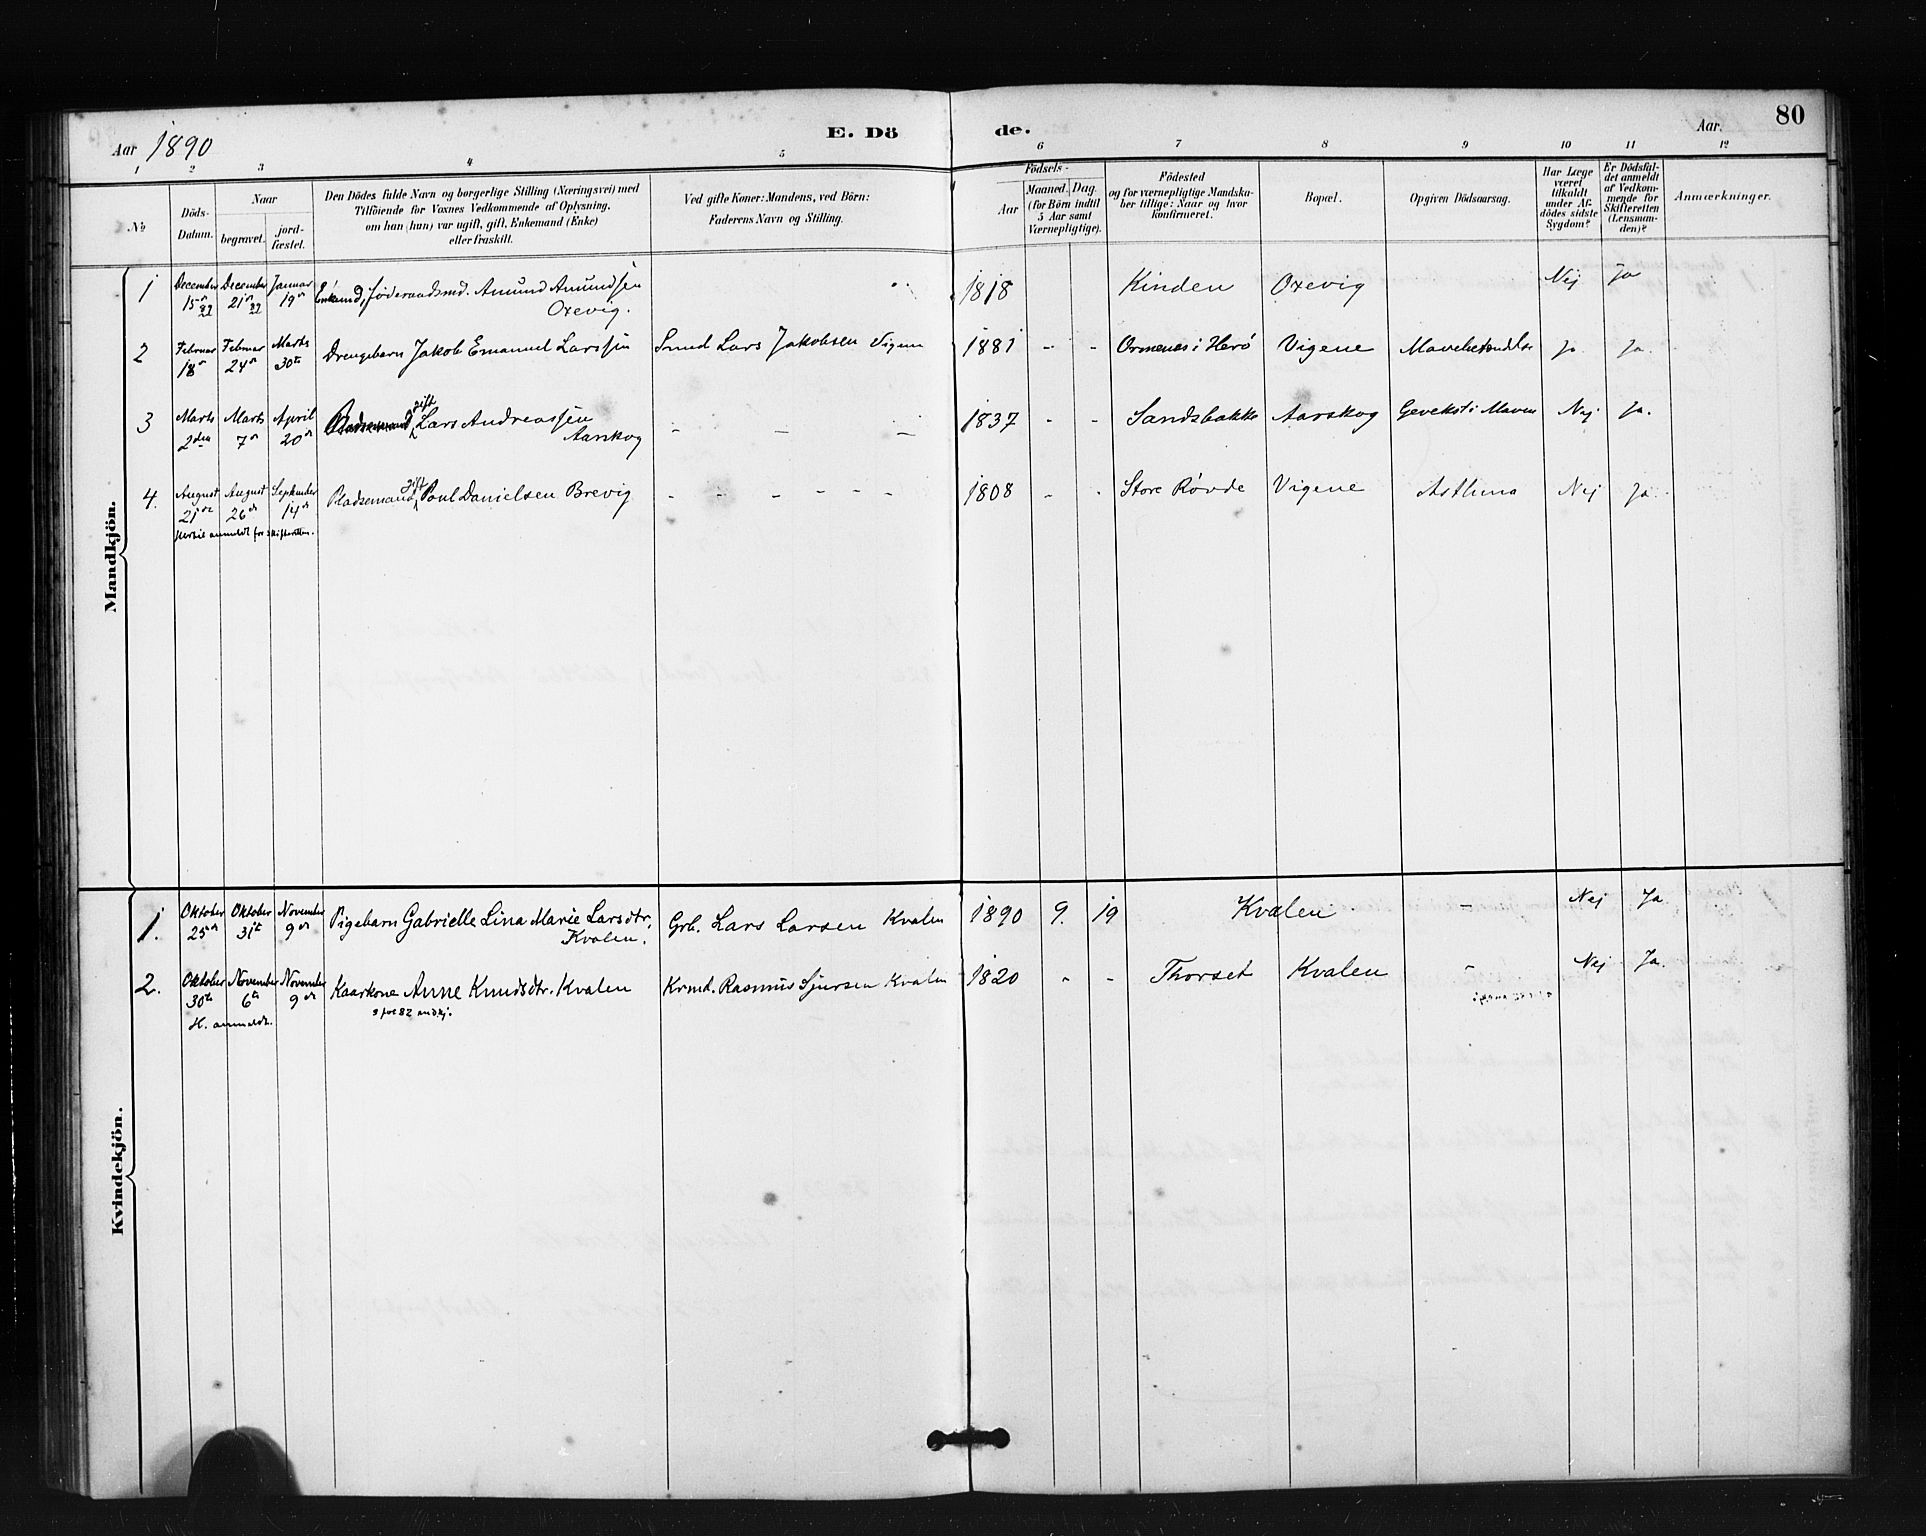 80
Aar 1890
E. Dö
de.
Aar.
1 2 3 4 5 6 7 8 9 10 11 12
№
Döds-
Datum.
Naar
begravet.
jord-
fæstet.
Den Dödes fulde Navn og borgerlige Stilling (Næringsvei) med
Tilföiende for Voxnes Vedkommende af Oplysning,
om han (hun) var ugift, gift, Enkemand (Enke)
eller fraskilt.
Ved gifte Koner: Mandens, ved Börn:
Faderens Navn og Stilling.
Födsels-
Aar
Maaned. Dag.
(for Börn indtil
5 Aar samt
Værnepligtige).
Födested
og for værnepligtige Mandska-
ber tillige: Naar og hvor
konfirmeret.
Bopæl.
Opgiven Dödsaarsag.
Har Læge
været
tilkaldt
under Af-
dödes sidste
Sygdom?
Er Dödsfal-
det anmeldt
af Vedkom-
mende for
Skifteretten
(Lensman-
den)?
Anmærkninger.
Mandkjön.
1 December December Januar Föderaadsmd. Amund Amundsen 1818 Kinden Oxevig Nej Ja
15de 21de 19de Oxevig.
2 Februar Februar Marts Drengebarn Jakob Emanuel Larssen Lars Jakobsen Vigene 1881 - - Ormenes i Herö Vigene Ja Ja.
18de 24de 30te
gift
3 Marts Marts April Pladsemand Lars Andreassen - - - 1837 - - Sandsbakke Aarskog i Maven Nej Ja.
2den 7de 20de Aarskog
gift
4. August August September Pladsemand Poul Danielsen Brevig - - - - - - 1808 - - Store Rövde Vigene Asthma Nej Ja.
21de 26de 14de
anmeldt for Skifteretten.
Kvindekjön.
1. Oktober Oktober November Pigebarn Gabrielle Lina Marie Larsdtr. Grb. Lars Larsen Kvalen 1890 9. 19 Kvalen - Nej Ja
25de 31te 9de Kvalen.
2. Oktober November November Kaarkone Anne Knudsdtr. Kvalen Krmd. Rasmus Sjursen Kvalen 1820 - - Thorset Kvalen - Nej Ja.
30te 6te 9de
H. anmeldt.